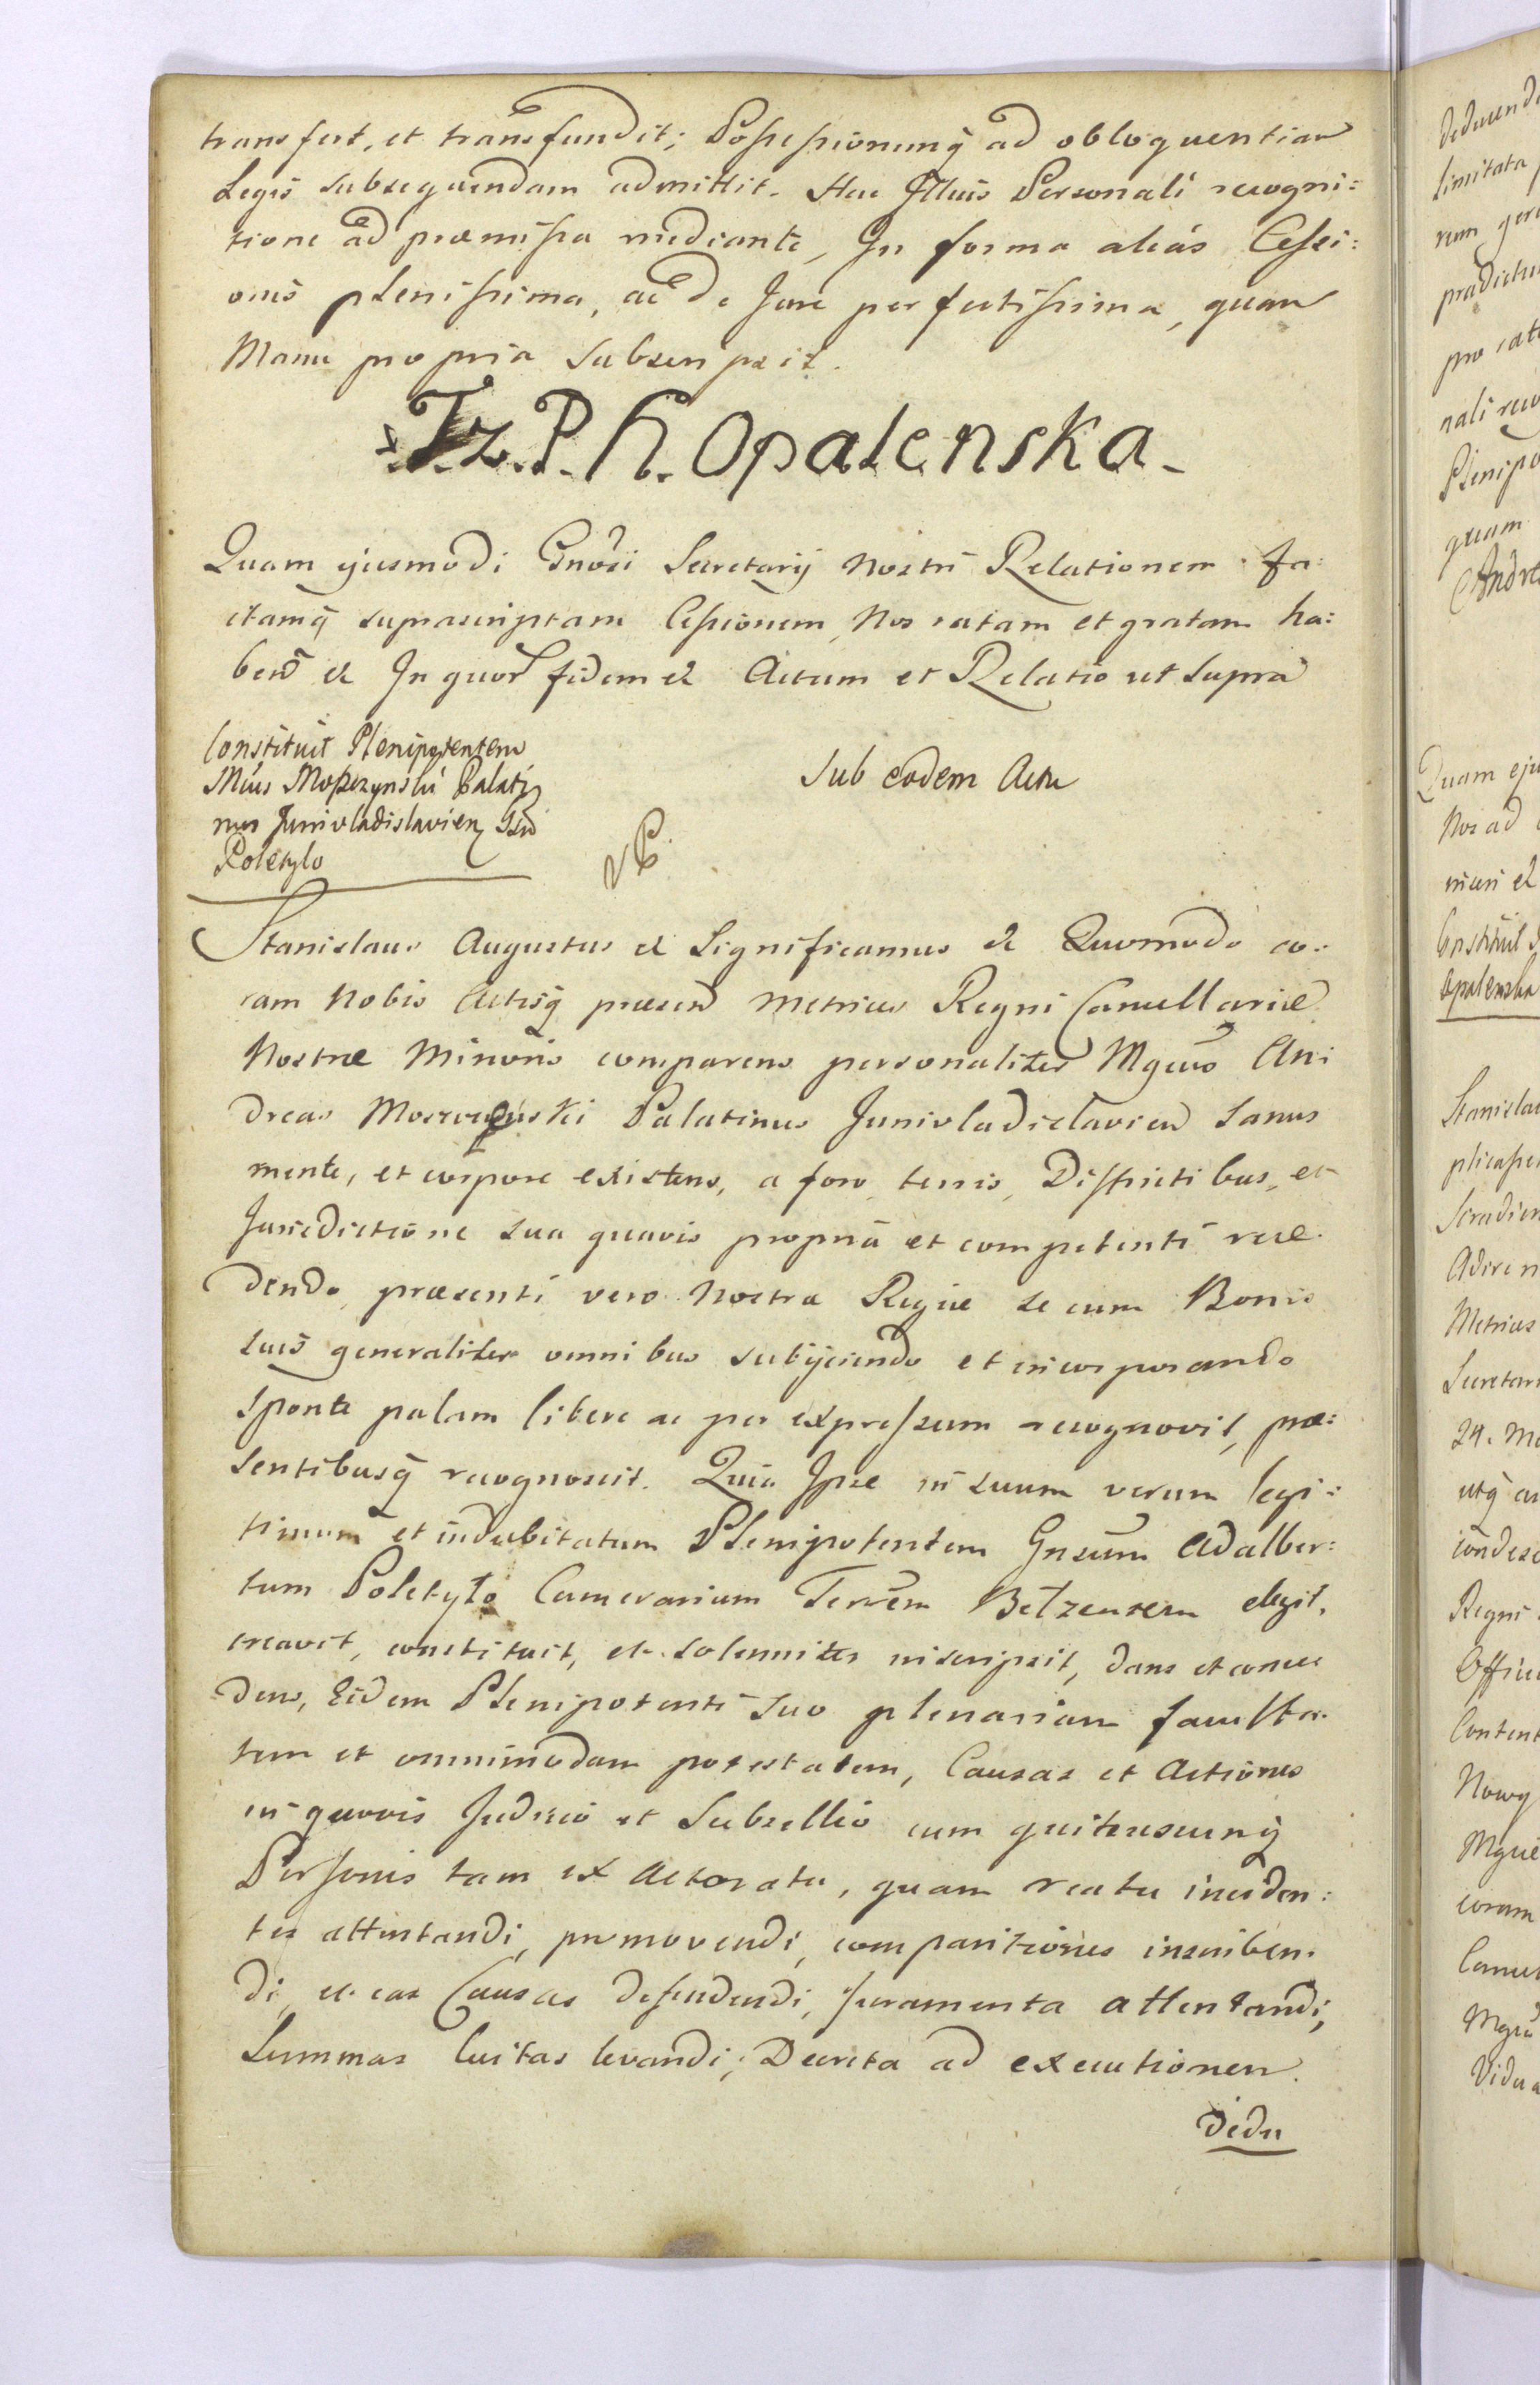 transfert, et transfundit; Possessionemq̃ ad obloquentiam
Legis subsequendam admittit. Hac Illius Personali recogni:
tione ad præmissa mediante, In forma alias Cessi:
onis plenissima, ac de Jure perfectissima, quam
Manu propria subscripsit.
Tz. P. H. Opalenska.
Quam ejusmodi Gnosi Secretarij Nostri Relationem fa:
ctamq̃ suprascriptam Cessionem, Nos ratam et gratam ha:
bend̃ &c In quor̃ fidem &c Actum et Relatio ut supra
Constituit Plenipotentem
Mĩus Moszczynski Palati
nus Junivladislavien Gsũ
Poletylo
Sub eodem Actu
Stanislaus Augustus &c Significamus &c Quomodo co:
ram Nobis Actisq̃ præsen̄ Metrices Regni Cancellariæ
Nostræ Minoris comparens personaliter Mgcus An:
dreas Moszczenski Palatinus Junivladislavien̄ sanus
mente, et corpore existens, a foro, terris, Districtibus, et
Jurisdictione sua quavis propria et competenti rece:
dendo, præsenti vero Nostræ Regiæ se cum Bonis
suis generaliter omnibus subijciendo et incorporando
sponte palam libere ac per expressum recognovit, præ:
sentibusq̃ recognoscit. Quia Ipse in suum verum legi:
timum et indubitatum Plenipotentem Gnsum Adalber:
tum Poletyło Camerarium Terrem Belzensem elegit,
creavit, constituit, et solenniter inscripsit, dans et conce
dens, Eidem Plenipotenti suo plenariam faculta:
tem et omnimodam potestatem, Causas et Actiones
in quovis Judicio et Subsellio cum quibuscunq̃
Personis tam ex Actoratu, quam reatu inciden:
tes attentandi, promovendi, comparitiones inscriben:
di, et eas Causas defendendi, Juramenta attentandi,
Summas luitas levandi, Decreta ad executionem
dedu